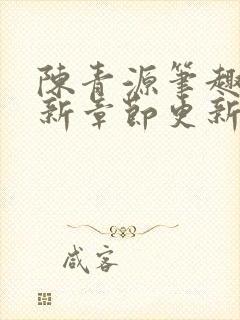 陳青源筆趣
新章節更新
咸客